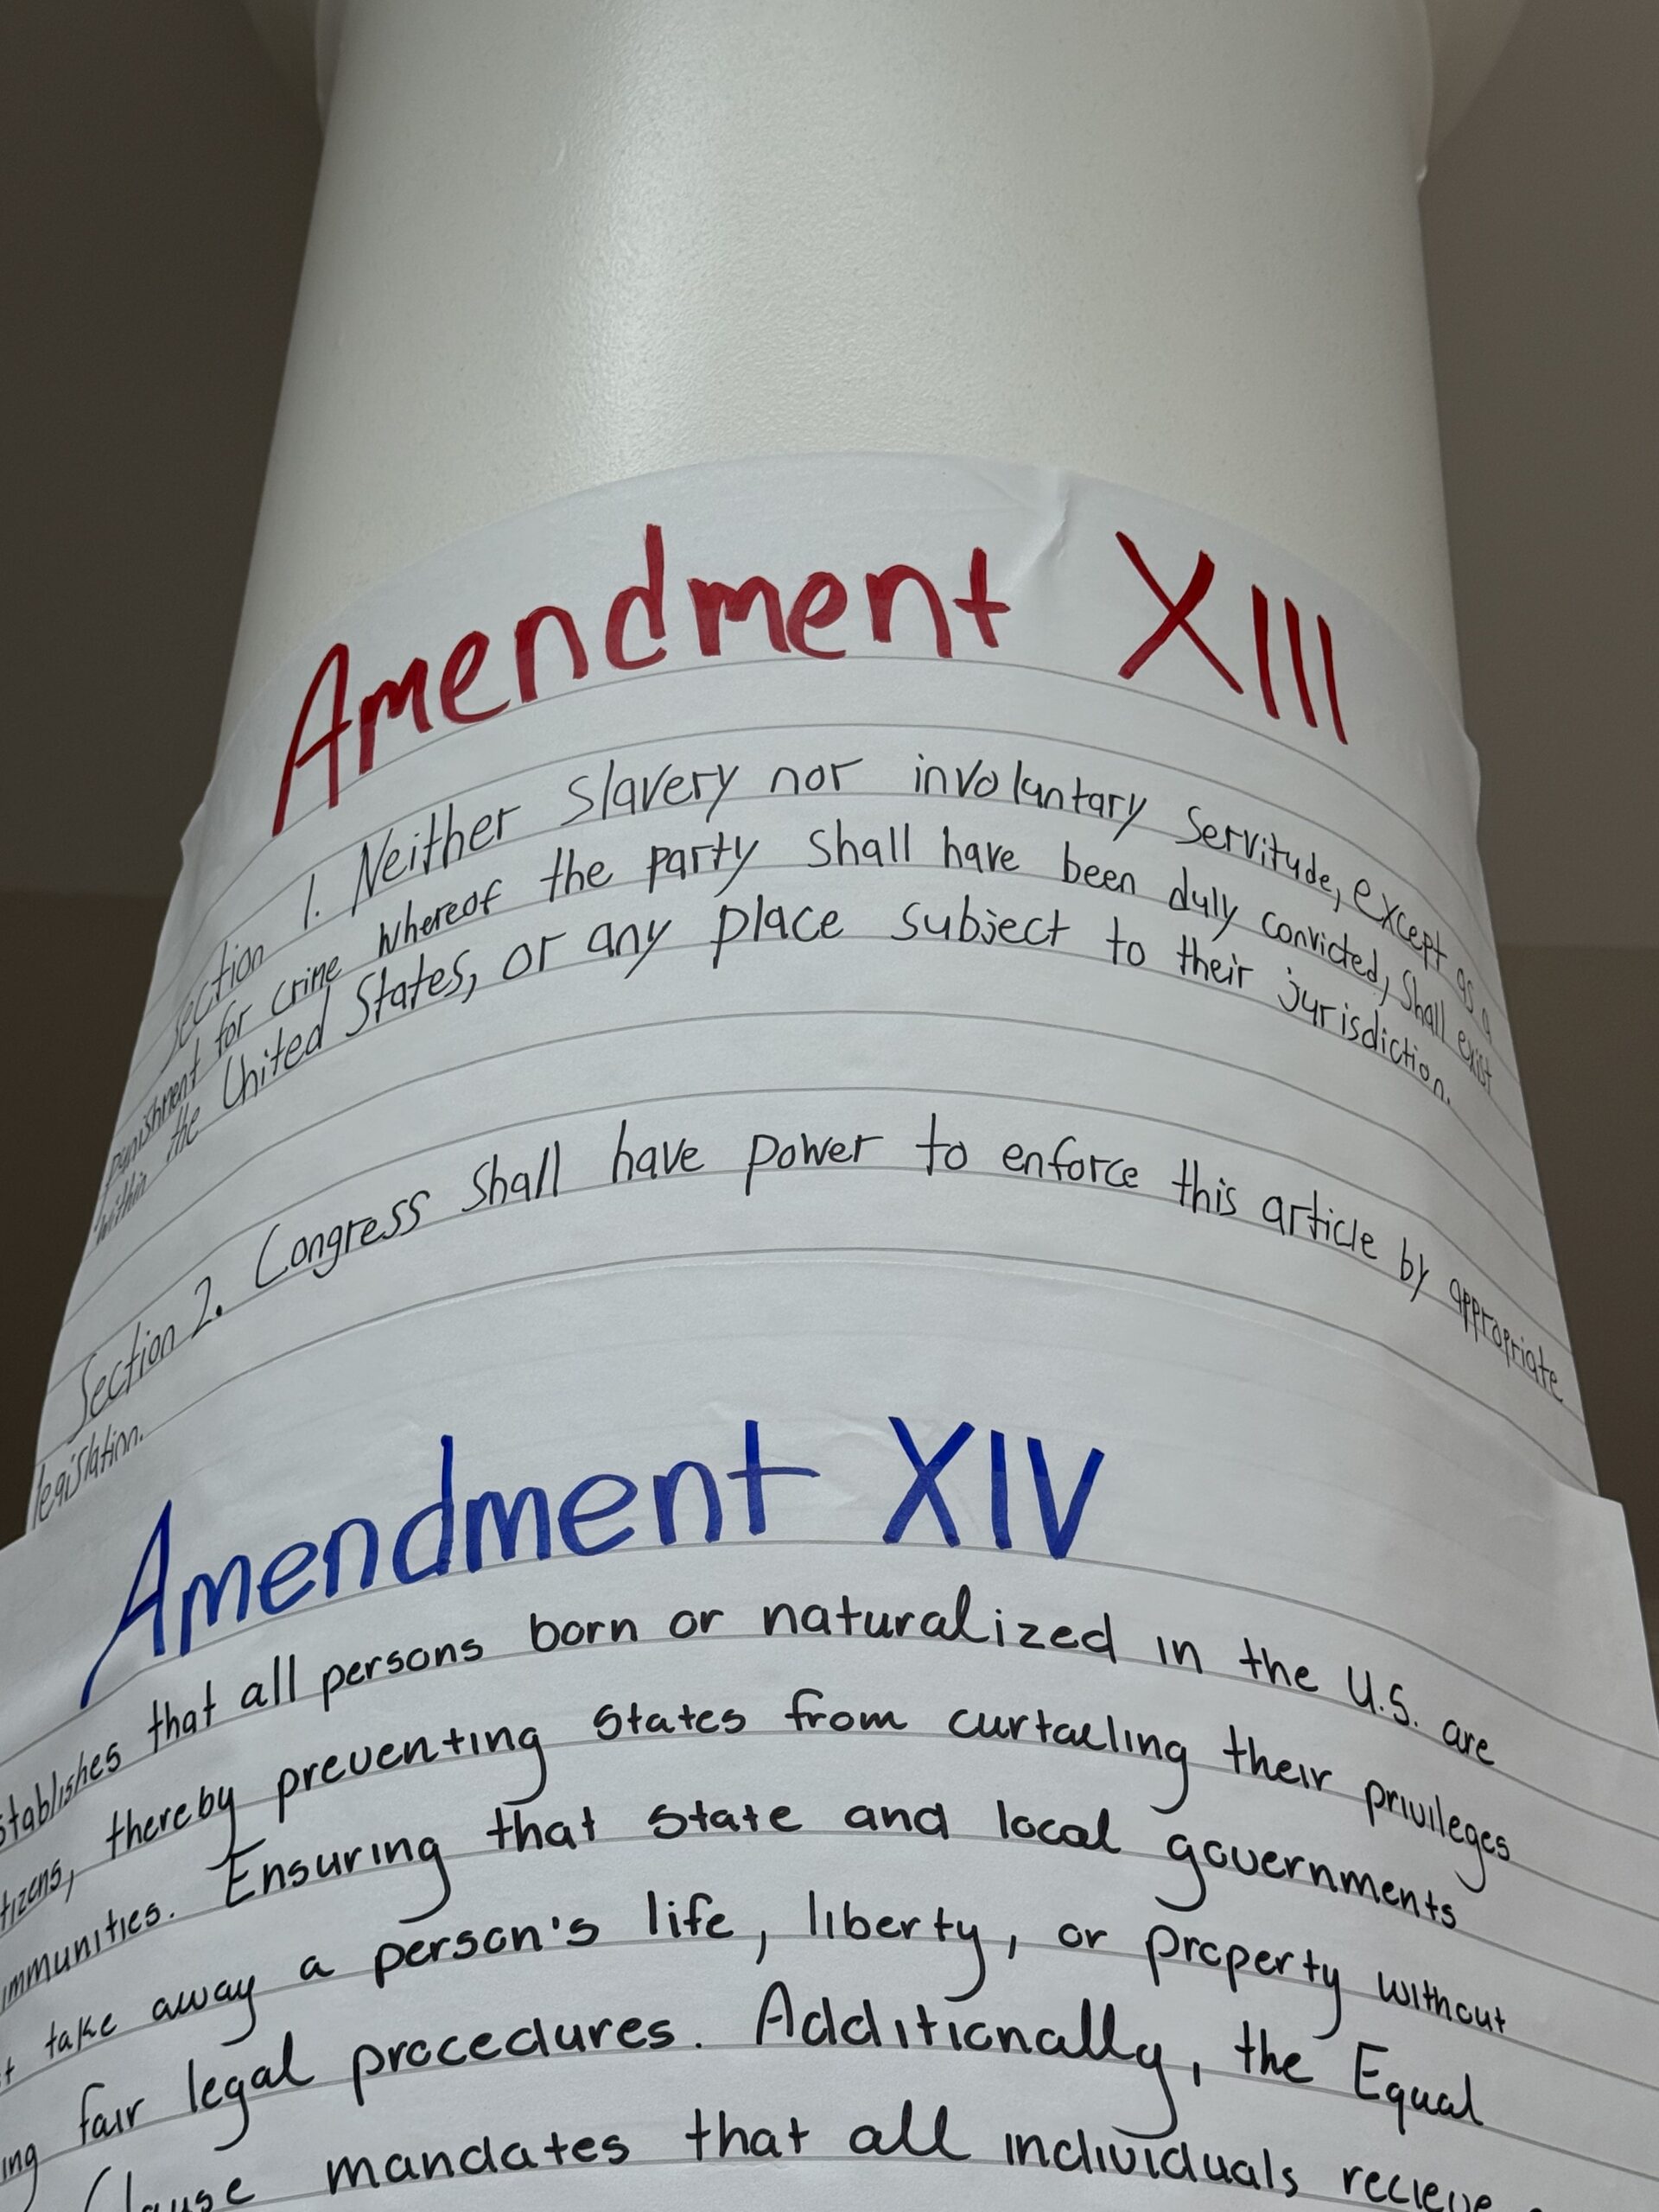 Amendment XIII
Section 1. Neither slavery nor involuntary servitude, except as a
punishment for crime whereof the party shall have been duly convicted, shall exist
within the United States, or any place subject to their jurisdiction.
Section 2. Congress shall have power to enforce this article by appropriate
legislation.
Amendment XIV
stablishes that all persons born or naturalized in the U.S. are
tizens, thereby preventing states from curtailing their privileges
mmunities. Ensuring that state and local governments
t take away a person's life, liberty, or property without
ing fair legal procedures. Additionally, the Equal
Clause mandates that all individuals recieve